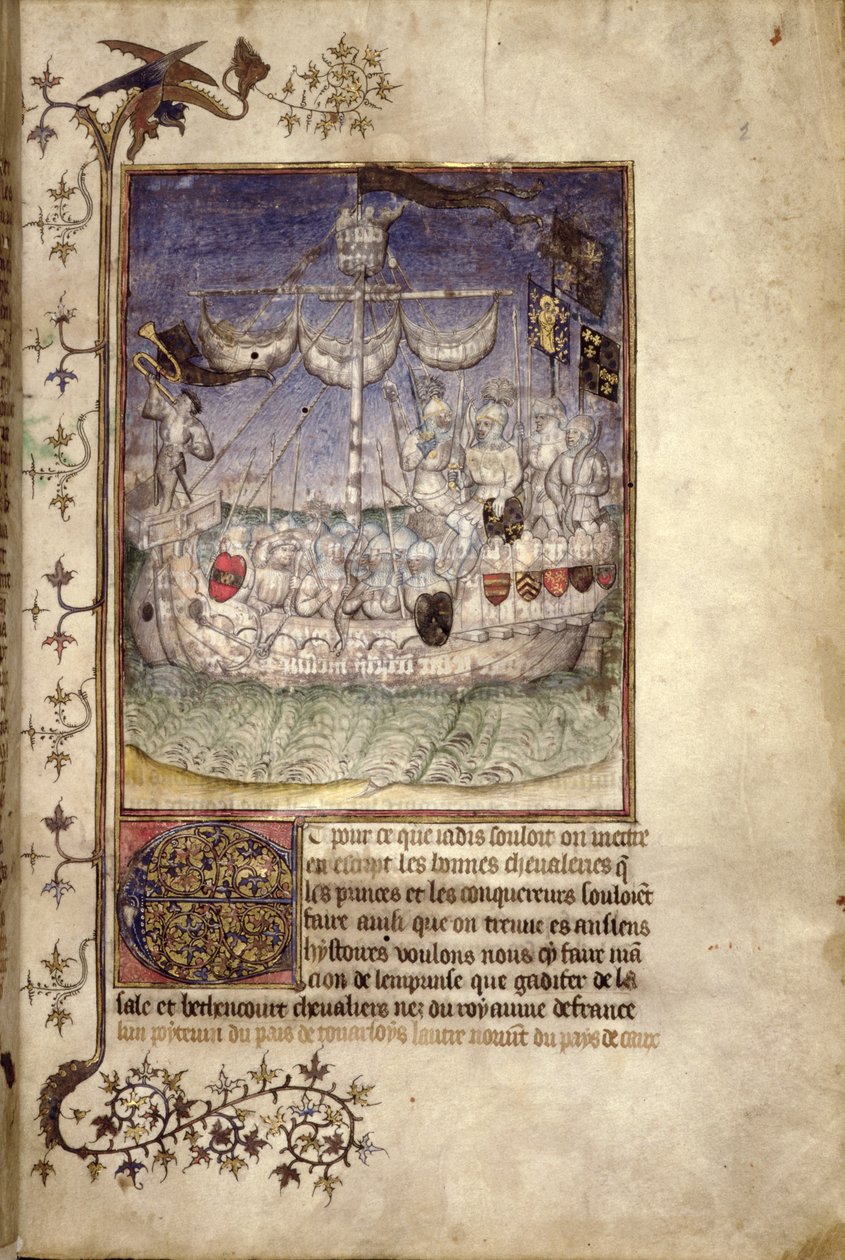 Et pour ce que iadis souloit on mectre
en escript les bonnes chevaleries q̃
les princes et les conquereurs souloiẽt
faire ainsi que on treuue es ansiens
hystoires voulons nous cy faire mã
cion de lemprinse que gadifer de la
sale et bethencourt chevaliers nez du royaume de france
lun poytevin du pais de touarsoys lautre normt du pays de caux
2